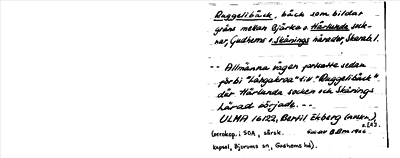 Ruggelibäck, bäck som bildar
gräns mellan Bjärka o. Hårlunda sock-
nar, Gudhems o. Skånings härader, Skarab. l.
-- Allmänna vägen fortsatte sedan
förbi "Långakroa" t.v. "Ruggelibäck"
där Hårlunda socken och Skånings
härad började. --
ULMA 16122, Bertil Ekberg
(avskop. i SOA, särsk.
kapsel, Bjurums sn, Gudhems hd).